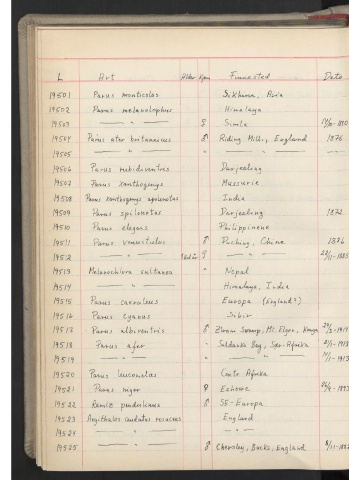 L Art Alder Kjøn Funnested Dato
19501 Parus monticolas Sikkim, Asia
19502 Parus melanolophus Himalaya
19503 — " — ♀ Simla
19504 Parus ater britannicus ♂ Riding Mill, England 1876
19505 — " — " — " — "
19506 Parus rubidiventris Darjeeling
19507 Parus xanthogenys Mussurie
19508 Parus xanthogenys aplonotus India
19509 Parus spilonotus Darjeeling 1872
19510 Parus elegans Philippinene
19511 Parus venustulus ♂ Puching, China 1896
19512 — " — ♀ — " —
19513 Melanochlora sultanea " Nepal
19514 — " — Himalaya, India
19515 Parus caeruleus Europa (England?)
19516 Parus cyanus Sibir
19517 Parus albiventris ♂ Swamp, Mt. Elgon, Kenya
19518 Parus afer " Saldanha Bay, Sør-Afrika
19519 — " — " — " —
19520 Parus leuconotus Centr. Afrika
19521 Parus niger ♀ Eshowe
19522 Remiz pendulinus ♂ SE-Europa
19523 Aegithalos caudatus rosaceus England
19524 — " — — " —
19525 — " — ♂ Chearsley, Bucks, England